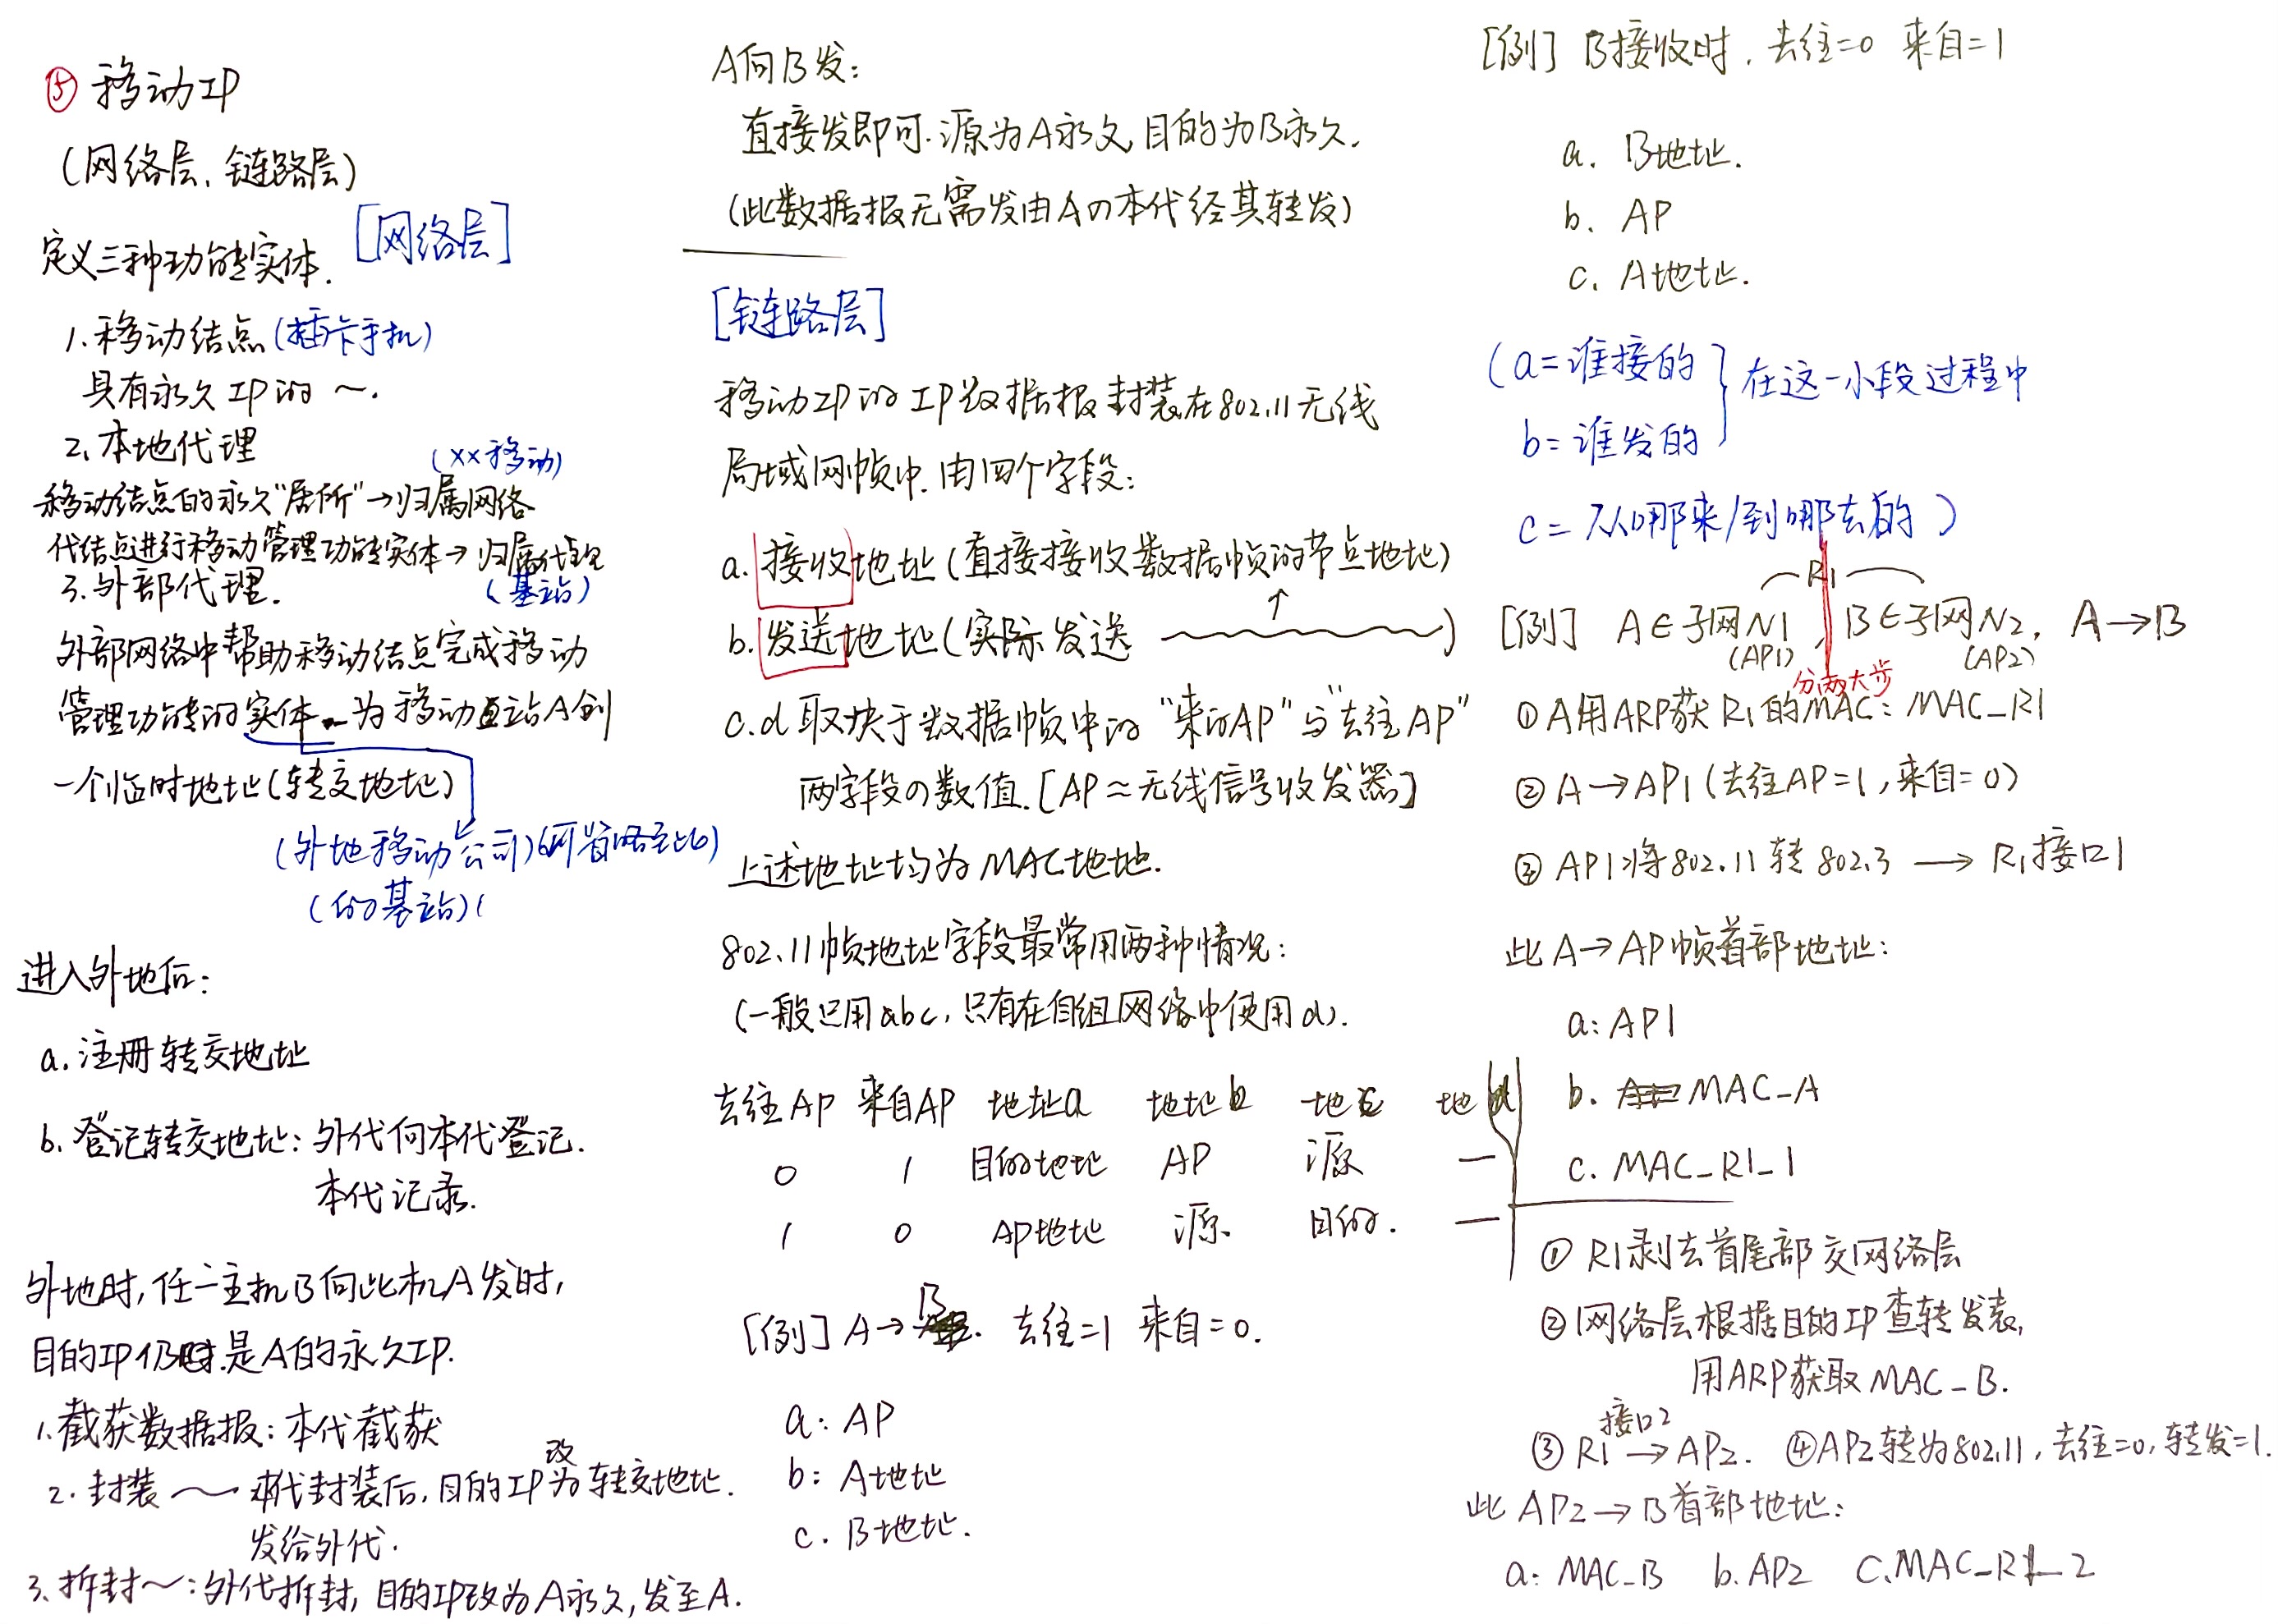 ⑤ 移动IP
(网络层、链路层)
[网络层]
定义三种功能实体.
1.移动结点(插卡手机)
具有永久IP的～.
2.本地代理
(××移动)
移动结点的永久"居所"→归属网络
代结点进行移动管理功能实体→归属代理
(基站)
3.外部代理.
外部网络中帮助移动结点完成移动
管理功能的实体 为移动站A创
一个临时地址(转交地址)
(外地移动公司)(可省略至此)
(的基站)(
进入外地后:
a.注册转交地址
b.登记转交地址:外代向本代登记.
本代记录.
外地时,任一主机B向此机A发时,
目的IP仍是A的永久IP.
1.截获数据报:本代截获
2.封装～本代封装后,目的IP改为转交地址.
发给外代.
3.拆封～:外代拆封,目的IP改为A永久,发至A.
A向B发:
直接发即可.源为A永久,目的为B永久.
(此数据报无需发由A的本代经其转发)
[链路层]
移动IP的IP数据报封装在802.11无线
局域网帧中.由四个字段:
a.接收地址(直接接收数据帧的节点地址)
b.发送地址(实际发送 ↑ )
c.d取决于数据帧中的"来自AP"与"去往AP"
两字段の数值.[AP≈无线信号收发器]
上述地址均为MAC地址.
802.11帧地址字段最常用两种情况:
(一般只用abc,只有在自组网络中使用d).
去往AP 来自AP 地址a 地址b 地c 地d
0 1 目的地址 AP 源 —
1 0 AP地址 源 目的. —
[例] A→B. 去往=1 来自=0.
a: AP
b: A地址
c. B地址.
[例] B接收时.去往=0 来自=1
a. B地址.
b. AP
c. A地址.
(a=谁接的
b=谁发的
} 在这一小段过程中
c=从哪来/到哪去的)
R1
[例] A∈子网N1, B∈子网N2, A→B
(AP1) (AP2)
分两大步
①A用ARP获R1的MAC: MAC_R1
②A→AP1(去往AP=1,来自=0)
③AP1将802.11转802.3 → R1接口1
此A→AP帧首部地址:
a: AP1
b. MAC-A
c. MAC_R1_1
① R1剥去首尾部交网络层
②网络层根据目的IP查转发表,
用ARP获取MAC_B.
接口2
③R1→AP2. ④AP2转为802.11,去往=0,转发=1.
此AP2→B首部地址:
a: MAC_B b.AP2 C.MAC_R1_2